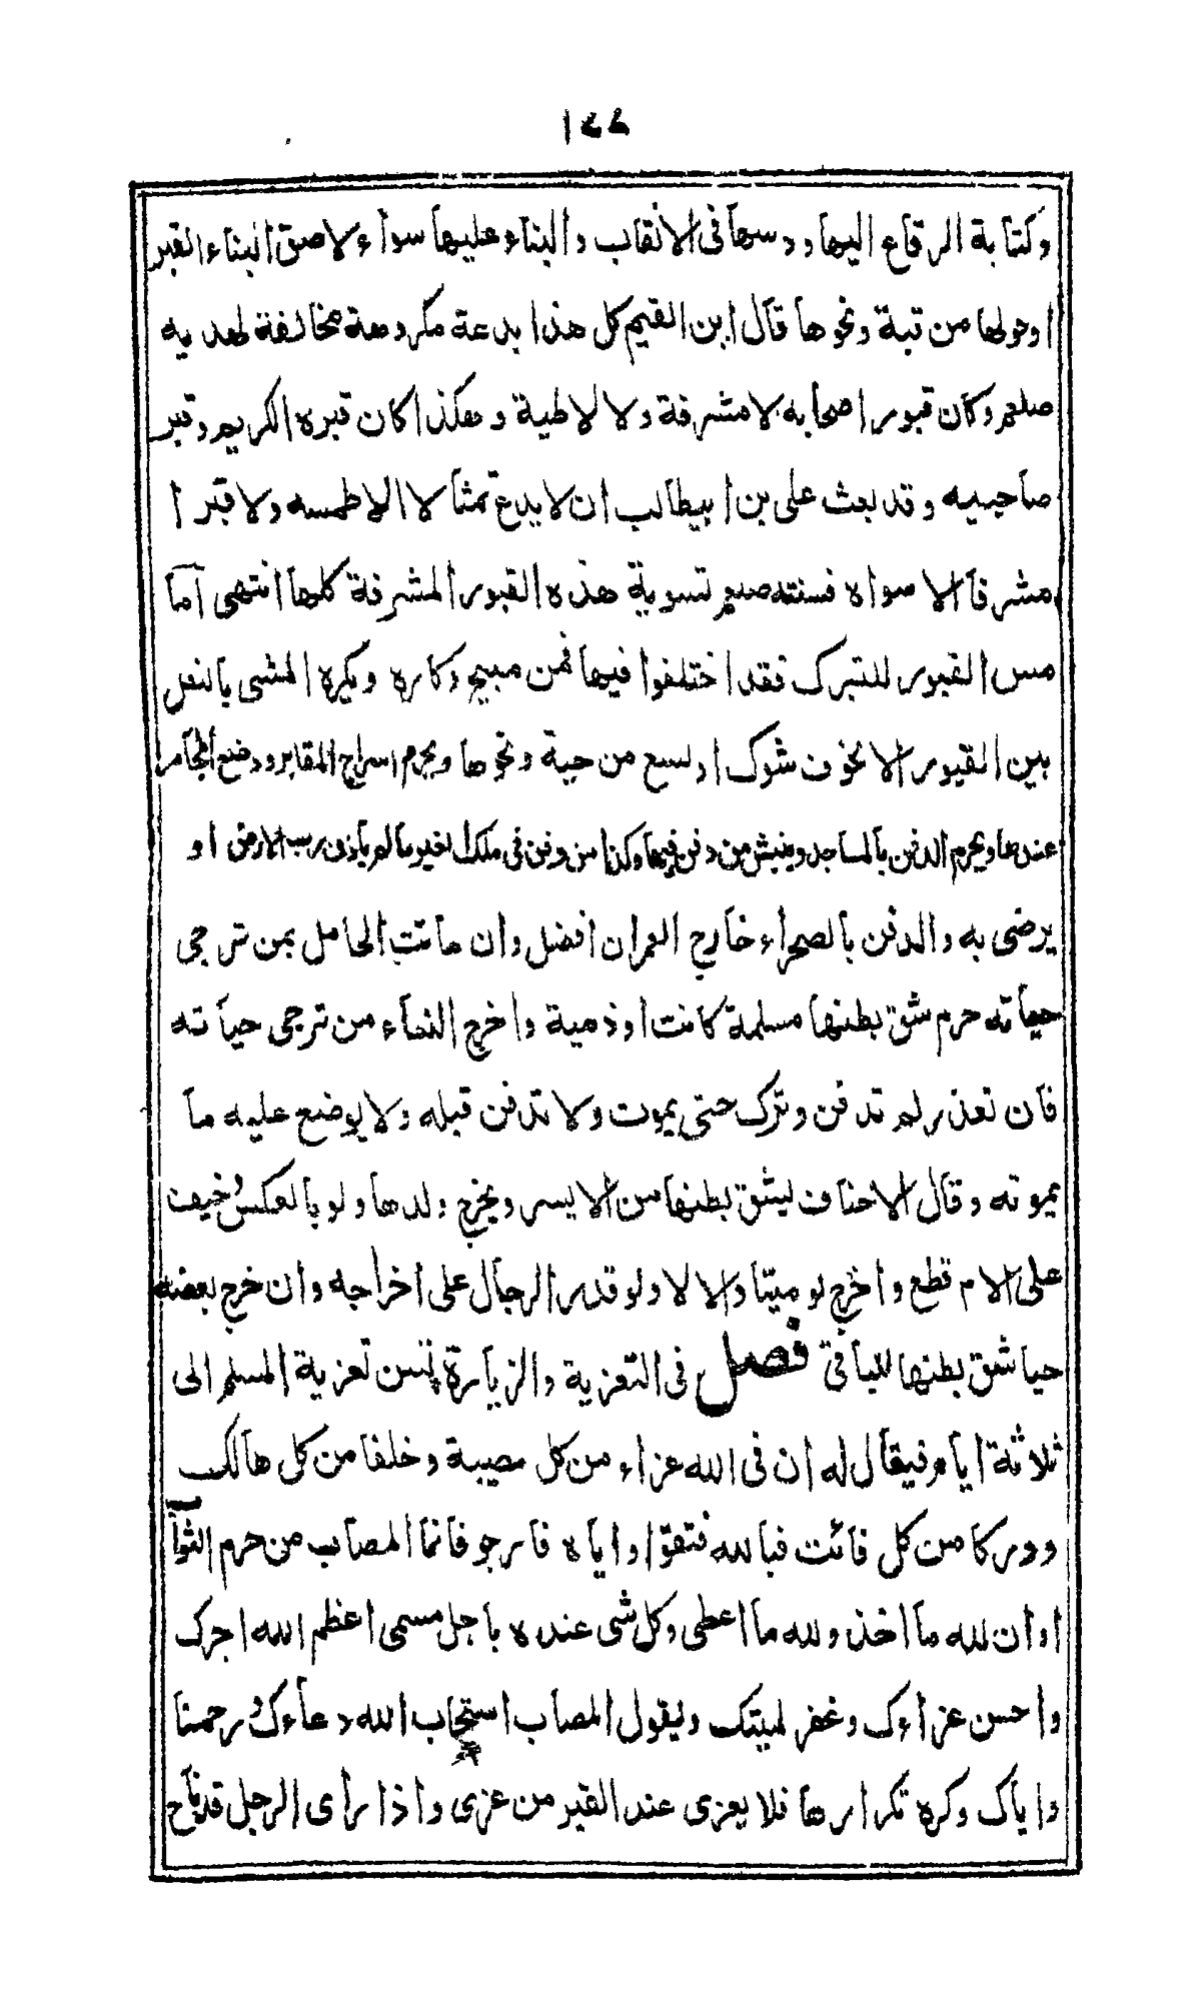 ١٤٨
وكتابة الرقاع اليها ودسها فى الانقاب والبناء عليها سواء لاصق البناء القبر
اوحولها من قبة ونحوها قال ابن القيم كل هذا بدعة مكروهة مخالفة لهديه
صلعم وكان قبور اصحابه لا مشرفة ولا لاطية وهكذا كان قبره الكريم وقبر
صاحبيه وقد بعث على بن ابيطالب ان لا يدع تمثالا الا طمسه ولا قبرا
مشرفا الا سواه فسنته صلعم تسوية هذه القبور المشرفة كلها انتهى اما
مس القبور للتبرك فقد اختلفوا فيها فمن مبيح وكاره ويكره المشى بالنعل
بين القبور الا لخوف شوك اولسع من حية ونحوها ويحرم اسراج المقابر ووضع المجامر
عندها ويحرم الدفن بالمساجد وينبش من دفن فيها وكذا من دفن فى ملك الغير مالم ياذن رب الارض او
يرضى به والدفن بالصحراء خارج العمران افضل وان ماتت الحامل بمن ترجى
حياته حرم شق بطنها مسلمة كانت اوذمية واخرج النساء من ترجى حياته
فان تعذر لم تدفن وترك حتى يموت ولا تدفن قبله ولا يوضع عليه ما
يموته وقال الاحناف ليشق بطنها من الايسر ويخرج ولدها ولو بالعكس وخيف
على الام قطع واخرج لو ميتا والا لا ولو قدر الرجال على اخراجه وان خرج بعضه
حيا شق بطنها للباقى فصل فى التعزية والزيارة تسن تعزية المسلم الى
ثلاثة ايام فيقال له ان فى الله عزاء من كل مصيبة وخلفا من كل هالك
ودركا من كل فائت فبالله فتقوا واياه فارجو فانما المصاب من حرم الثواب
اوان لله ما اخذ ولله ما اعطى وكل شى عنده باجل مسمى اعظم الله اجرك
واحسن عزاءك وغفر لميتك وليقول المصاب استجاب الله دعاءك ورحمنا
واياك وكره تكرارها فلا يعزى عند القبر من عزى واذا رأى الرجل قد ناح